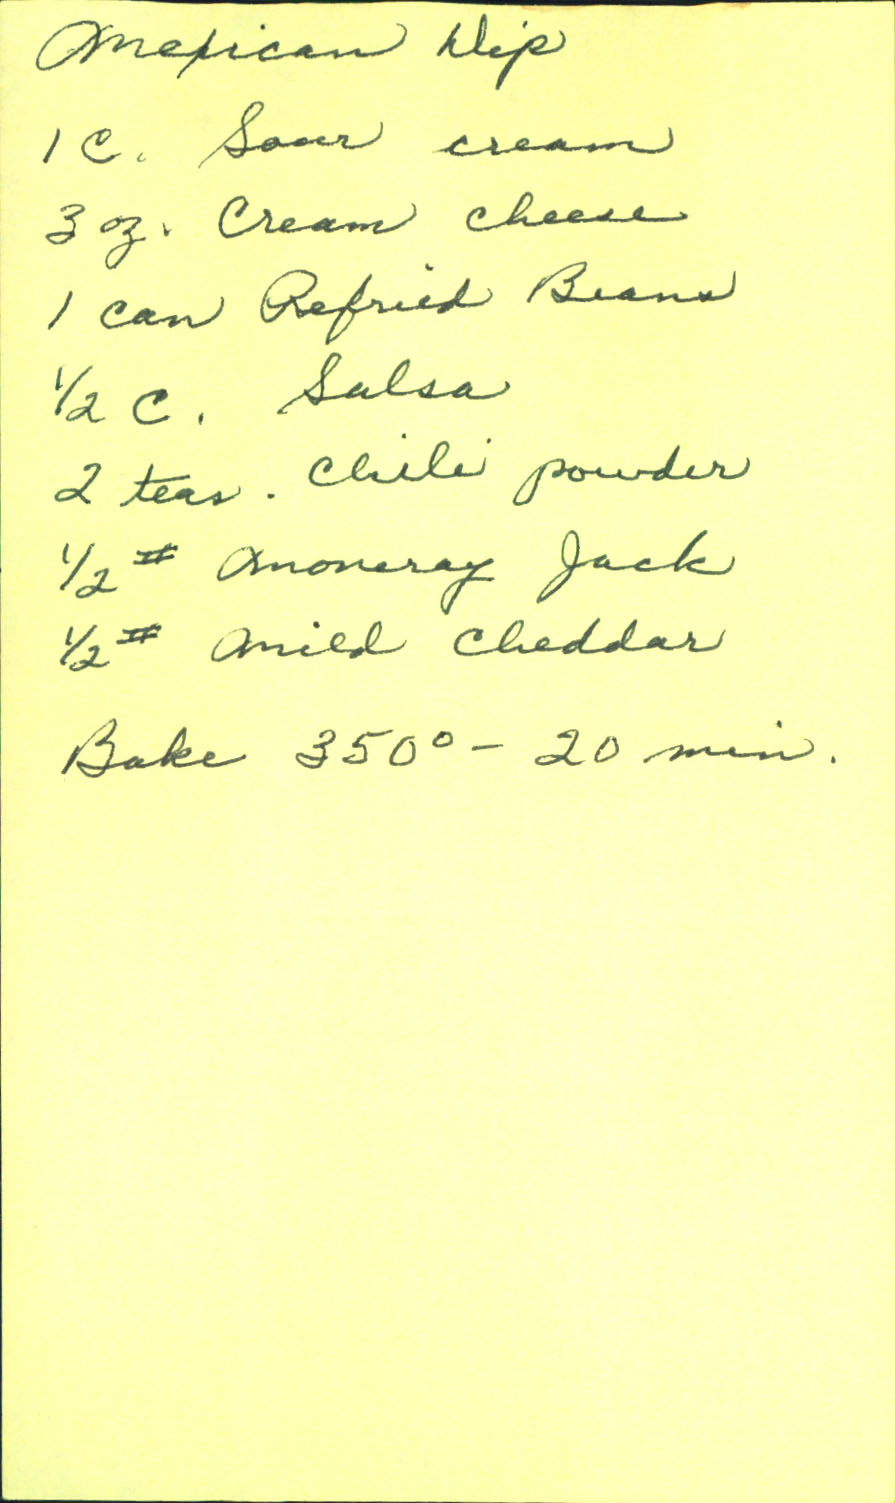 Mexican Dip
1 C. Sour cream
3 oz. Cream cheese
1 can Refried Beans
1/2 C. Salsa
2 teas. Chili powder
1/2 # Moneray Jack
1/2 # Mild Cheddar
Bake 350° - 20 min.